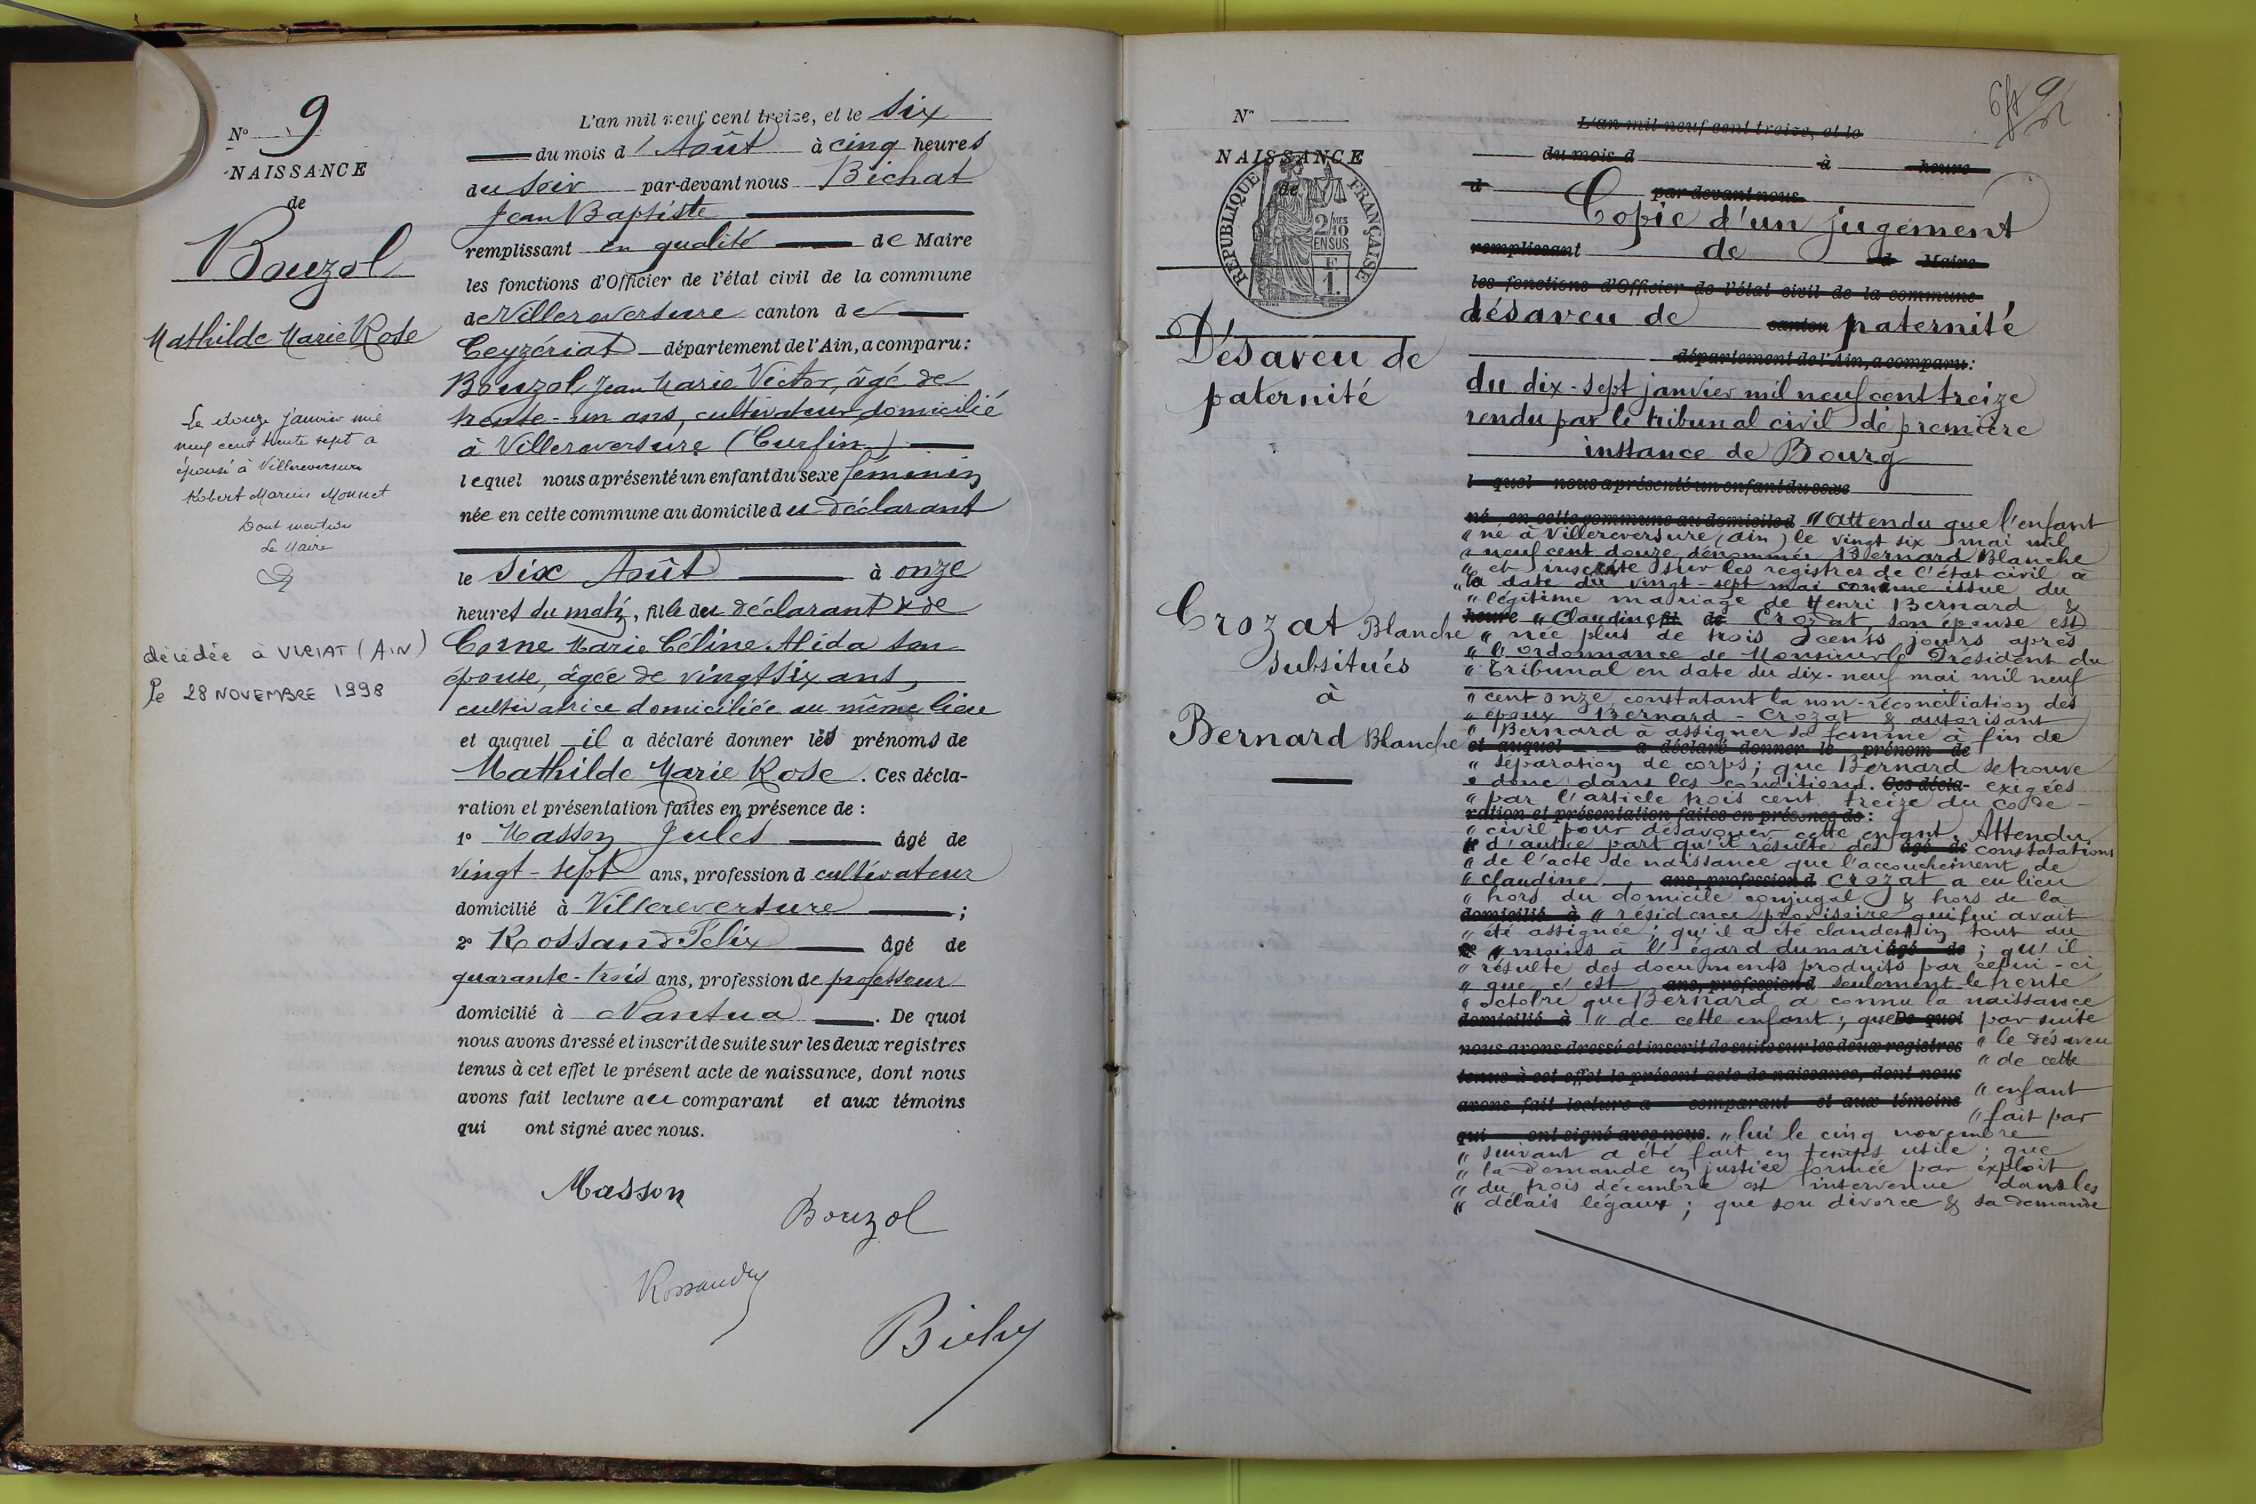 N° 9
NAISSANCE
de
Bouzol
Mathilde Marie Rose
Le douze janvier mil
neuf cent trente sept a
épousé à Villereversure
Robert Marius Monnet
Dont mention
Le Maire
décédée à VIRIAT (AIN)
le 28 NOVEMBRE 1998
L'an mil neuf cent treize, et le six
du mois d'Août à cinq heures
du soir par-devant nous Bichat
Jean Baptiste
remplissant en qualité de Maire
les fonctions d'Officier de l'état civil de la commune
de Villereversure canton de
Ceyzériat département de l'Ain, a comparu:
Bouzol Jean Marie Victor, âgé de
trente-un ans, cultivateur domicilié
à Villereversure (Curfin)
lequel nous a présenté un enfant du sexe féminin
née en cette commune au domicile du déclarant
le six Août à onze
heures du matin, fille du déclarant & de
Corne Marie Céline Alida son
épouse, âgée de vingt six ans,
cultivatrice domiciliée au même lieu
et auquel il a déclaré donner les prénoms de
Mathilde Marie Rose. Ces décla-
ration et présentation faites en présence de :
1° Masson Jules âgé de
vingt-sept ans, profession d cultivateur
domicilié à Villereversure ;
2° Rossand Félix âgé de
quarante-trois ans, profession de professeur
domicilié à Nantua . De quoi
nous avons dressé et inscrit de suite sur les deux registres
tenus à cet effet le présent acte de naissance, dont nous
avons fait lecture au comparant et aux témoins
qui ont signé avec nous.
Masson
Bouzol
Rossand
N°
NAISSANCE
de
RÉPUBLIQUE FRANÇAISE
2/10 EN SUS
F
1.
Désaveu de
paternité
Crozat Blanche
subsitués
à
Bernard Blanche
L'an mil neuf cent treize, et le
du mois d à heure
d par-devant nous
Copie d'un jugement
remplissant de d Maire
les fonctions d'Officier de l'état civil de la commune
désaveu de canton paternité
département de l'Ain, a comparu:
du dix-sept janvier mil neuf cent treize
rendu par le tribunal civil de première
instance de Bourg
l quel nous a présenté un enfant du sexe
né en cette commune au domicile d " Attendu que l'enfant
" né à Villereversure (Ain) le vingt six mai mil
" neuf cent douze, dénommée Bernard Blanche
" et inscrite sur les registres de l'état civil à
" la date du vingt-sept mai comme issue du
" légitime mariage de Henri Bernard &
heure " Claudine fil de Crozat, son épouse est
" née plus de trois cents jours après
" l'ordonnance de Monsieur le Président du
" Tribunal en date du dix-neuf mai mil neuf
" cent onze, constatant la non-réconciliation des
" époux Bernard-Crozat & autorisant
" Bernard à assigner sa femme à fin de
et auquel a déclaré donner le prénom de
" séparation de corps ; que Bernard se trouve
" donc dans les conditions. Ces décla- exigées
" par l'article trois cent treize du code
ration et présentation faites en présence de :
" civil pour désavouer cette enfant. Attendu
" d'autre part qu'il résulte des âgé de constatations
" de l'acte de naissance que l'accouchement de
" claudine ans, profession d Crozat a eu lieu
" hors du domicile conjugal & hors de la
domicilié à " résidence provisoire qui lui avait
" été assignée ; qu'il a été clandestin tout du
" moins à l'égard du mari âgé de ; qu'il
" résulte des documents produits par celui-ci
" que c'est ans, profession d seulement le trente
" octobre que Bernard a connu la naissance
domicilié à " de cette enfant ; que De quoi par suite
nous avons dressé et inscrit de suite sur les deux registres " le désaveu
" de cette
tenus à cet effet le présent acte de naissance, dont nous
" enfant
avons fait lecture a comparant et aux témoins
" fait par
qui ont signé avec nous. " lui le cinq novembre
" suivant a été fait en temps utile ; que
" la demande en justice formée par exploit
" du trois décembre est intervenue dans les
" délais légaux ; que son divorce & sa demande